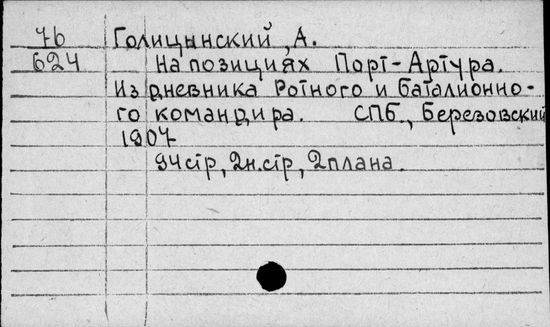 76 Голицынский, А.
624 На позициях Порт-Артура.
Из дневника ротного и баталионно-
го командира. СПб., Березовский
1907
94 стр, 2 н. стр, 2 плана.